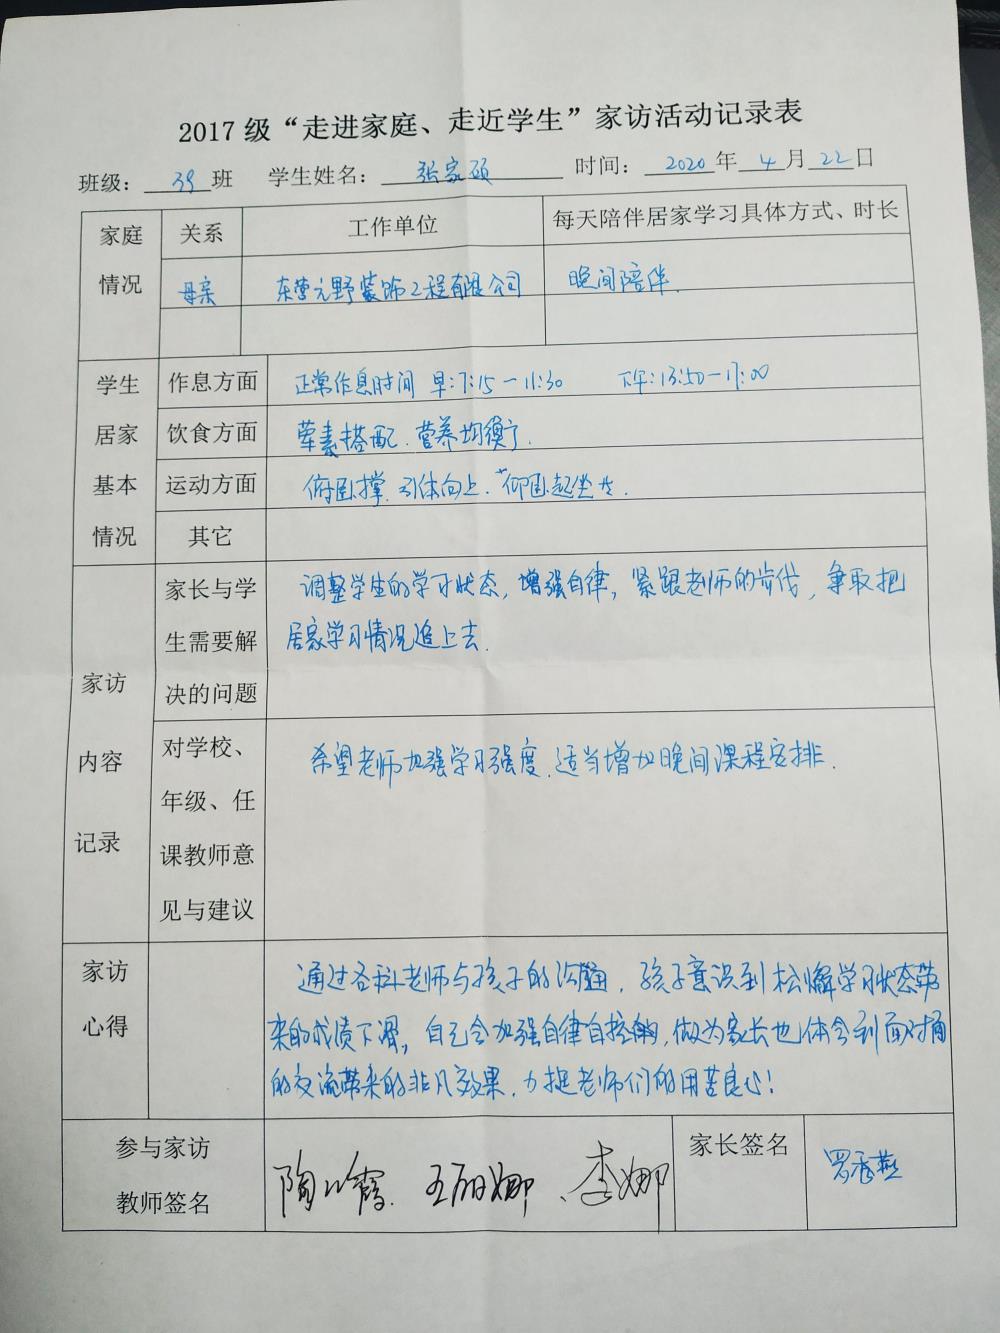 2017级“走进家庭、走近学生”家访活动记录表
班级：39班 学生姓名：张家硕 时间：2020年4月22日
家庭情况 关系 工作单位 每天陪伴居家学习具体方式、时长
母亲 东营元野装饰工程有限公司 晚间陪伴.
学生居家基本情况
作息方面 正常作息时间 早:7:15－11:30 下午:13:50－17:00
饮食方面 荤素搭配.营养均衡.
运动方面 俯卧撑.引体向上.仰卧起坐.
其它
家访内容记录
家长与学
生需要解
决的问题
调整学生的学习状态，增强自律，紧跟老师的步伐，争取把
居家学习情况追上去.
对学校、
年级、任
课教师意
见与建议
希望老师加强学习强度.适当增加晚间课程安排.
家访
心得
通过各科老师与孩子的沟通，孩子意识到松懈学习状态带
来的成绩下滑，自己会加强自律自控的，做为家长也体会到面对面
的交流带来的非凡效果，力挺老师们的用苦良心！
参与家访
教师签名
王丽娜、李娜
家长签名
罗秀燕